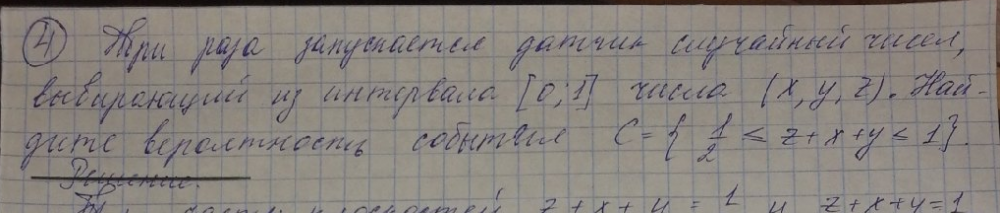 ④ Три раза запускается датчик случайный чисел,
выбирающий из интервала [0;1] числа (x, y, z). Най-
дите вероятность события C={ 1/2 ≤ z+x+y ≤ 1}.
Решение.
плоскостей z+x+y = 1 и z+x+y=1